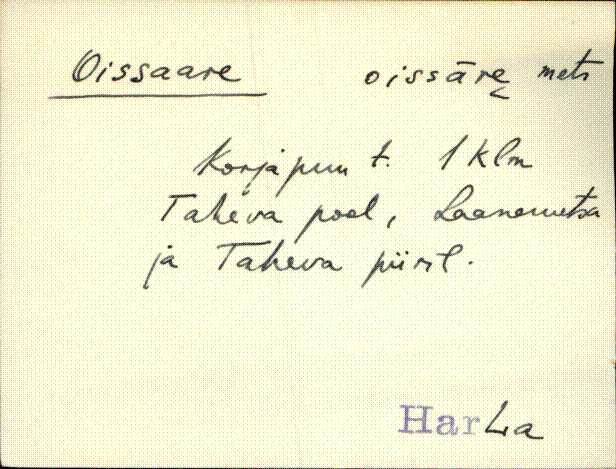 Oissaare oissāre̬ mets
Korjapuu t. 1 klm
Taheva pool, Laanemetsa
ja Taheva piiril.
Harla